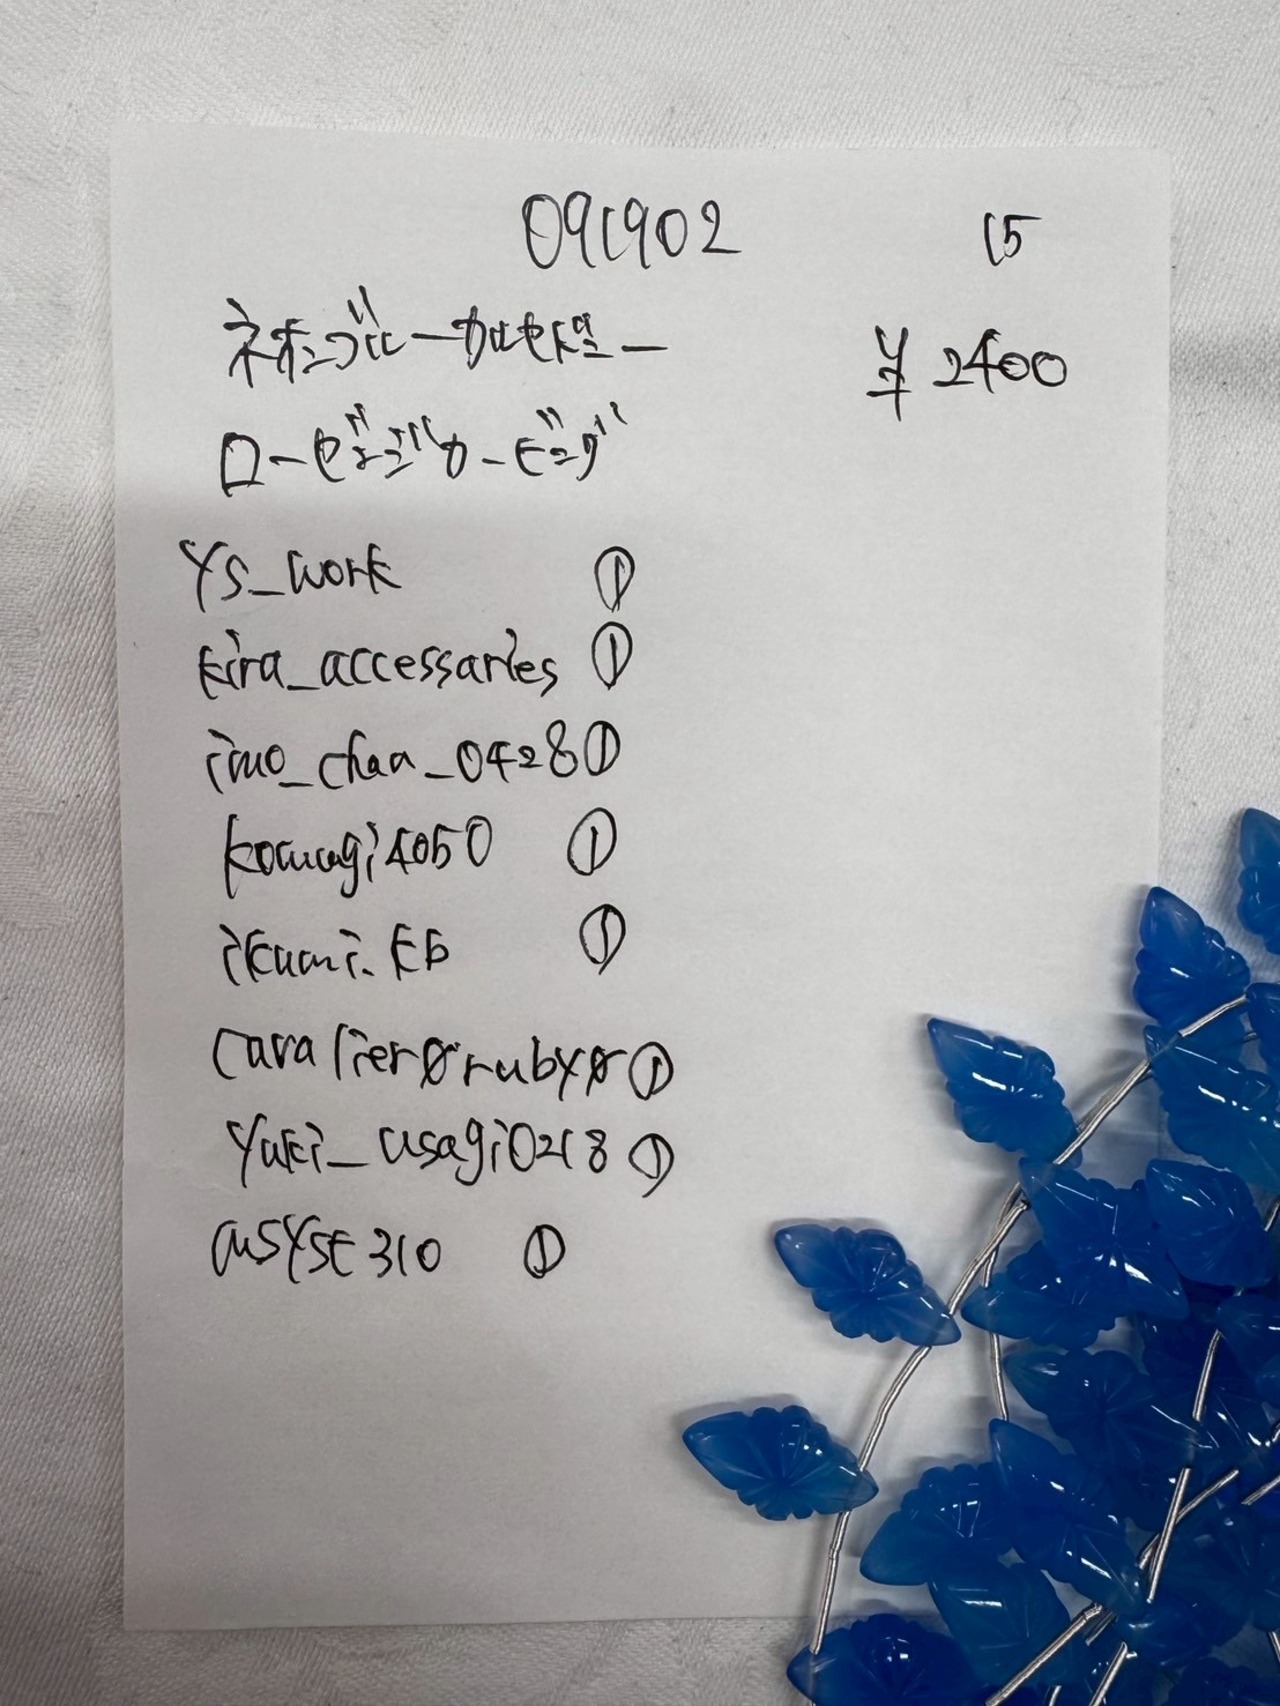 091902 15
ネオンブルーカルセドニー
¥2400
ローゼンジカービング
YS_work ①
kira_accessaries ①
imo_chan_0428 ①
komugi4050 ①
ikumi.kb ①
cavalier0ruby0 ①
yuki_usagi0218 ①
310 ①